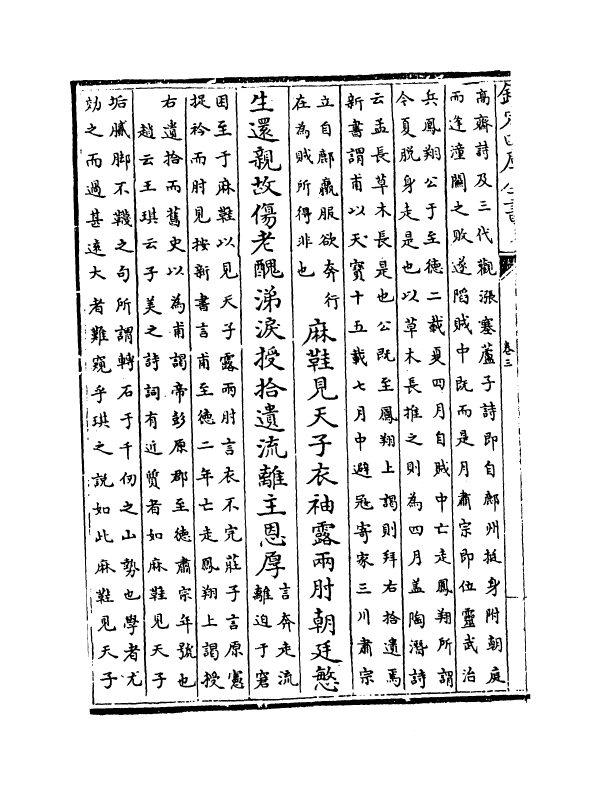 欽定四庫全書
卷三
髙齋詩及三代觀漲塞蘆子詩即自鄜州挺身附朝庭
而逢潼關之敗遂陷賊中既而是月肅宗即位靈武治
兵鳳翔公于至德二載夏四月自賊中亡走鳳翔所謂
今夏脱身走是也以草木長推之則為四月盖陶潛詩
云孟長草木長是也公既至鳳翔上謁則拜右拾遺焉
新書謂甫以天寳十五載七月中避冦寄家三川肅宗
立自鄜羸服欲奔行
在為賊所得非也
麻鞋見天子衣袖露兩肘朝廷慜
生還親故傷老醜涕淚授拾遺流離主恩厚
言奔走流
離迫于窘
困至于麻鞋以見天子露兩肘言衣不完莊子言原憲
捉衿而肘見按新書言甫至徳二年亡走鳳翔上謁授
右遺拾而舊史以為甫謁帝彭原郡至徳肅宗年號也
趙云王琪云子美之詩詞有近質者如麻鞋見天子
垢膩脚不韈之句所謂轉石于千仞之山勢也學者尤
効之而過甚逺大者難窺乎琪之說如此麻鞋見天子